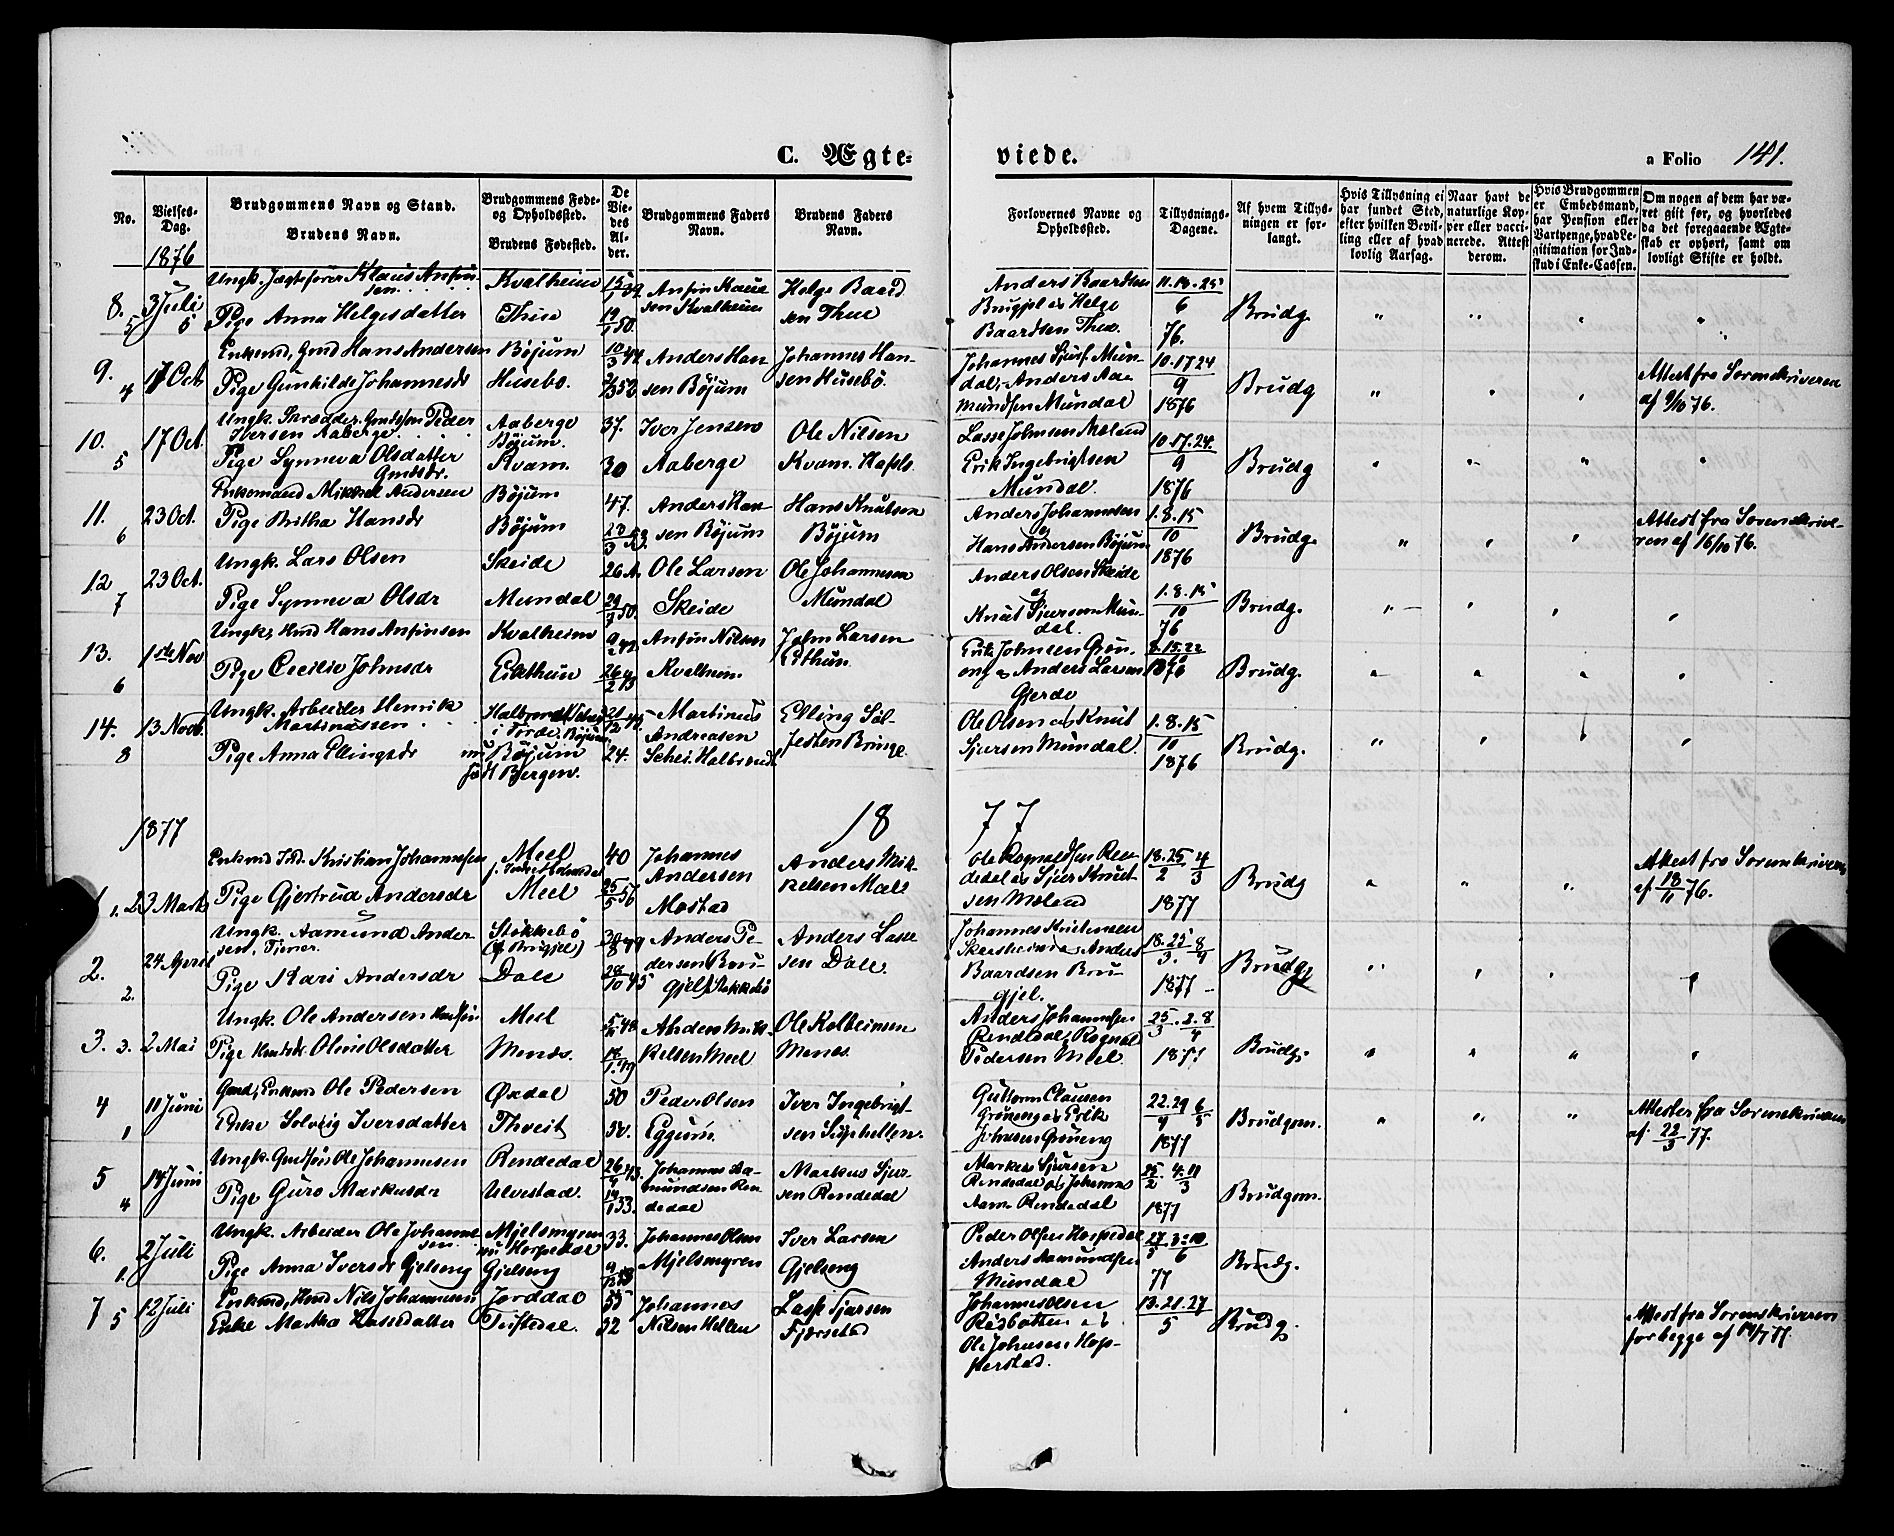 C. Ægte-
viede.
a Folio 141.
No.
Vielses-Dag.
Brudgommens Navn og Stand.
Brudens Navn.
Brudgommens Føde- og Opholdssted.
Brudens Fødested.
De Viedes Alder.
Brudgommens Faders Navn.
Brudens Faders Navn.
Forlovernes Navne og Opholdssted.
Tillysnings-Dagene.
Af hvem Tillysningen er forlangt.
Hvis Tillysning ei har fundet Sted, efter hvilken Bevilling eller af hvad lovlig Aarsag.
Naar havt de naturlige Kopper eller vaccinerede. Attest derom.
Hvis Brudgommen er Embedsmand, har Pension eller Vartpenge, hvad Legitimation for Indskud i Enke-Cassen.
Om nogen af dem har været gift før, og hvorledes da det foregaaende Ægteskab er ophørt, samt om lovligt Skifte er holdt.
1876
8. 5 3 Juli
Ungk. Jægtefører Klaus Ansinsen
Pige Anna Helgesdatter
Kvalheim
Ansin Klausen Kvalheim
Helge Baardsen
Anders Baardsen Brugjel og Helge Baardsen
11.18.25
6
76.
Brudg
9. 4 17 Oct
Enkemd, Gmd Hans Andersen
Pige Gunhilde Johannesdr
Bøjum
Husebø.
Anders Hansen Bøjum
Johannes Hansen Husebø
Johannes Sjurs. Mundal, Anders Aamundsen Mundal
10.17.24
9
1876
Brudg
Attest fra Sorenskriveren
af 9/10 76.
10. 5 17 Oct.
Ungk. Skrædder, Gmdsøn Peder Iversen Aaberge
Pige Synneva Olsdatter
Gmdsdr.
Aaberge
Bøjum.
Kvam.
37.
30
Iver Jensen
Aaberge
Ole Nilsen
Kvam. Hafslo
Lasse Johnsen Moland
Erik Ingebrigtsen
Mundal.
10.17.24.
9
1876
Brudg
11. 6 23 Oct.
Enkemand Mikkel Andersen
Pige Britha Hansdr
Bøjum
Bøjum
47.
Anders Hansen Bøjum
Hans Knutsen
Bøjum
Anders Johannesen
og
Hans Andersen Bøjum
1.8.15
10
1876
Brudg.
Attest fra Sorenskriveren af 16/10 76.
12 7 23 Oct.
Ungk. Lars Olsen
Pige Synneva Olsdr
Skeide
Mundal
Ole Larsen
Skeide
Ole Johannesen
Mundal
Anders Olsen Skeide
og
Knut Sjursen Mundal.
1.8.15
10
76
Brudg.
13. 6 1ste Nov
Ungk, Gmd Hans Ansinsen
Pige Cecilie Johnsdr
Kvalheim
Ansin Nilsen
Kvalheim
John Larsen
Anders Larsen
Gjerde
1876
Brudg.
14. 8 13 Novb.
Ungk. Arbeider Henrik Martinussen
Pige Anna Ellingsdr
nu Bøjum
født Bergen.
24.
Martinus
Andreasen
Elling Sol-
Ole Olsen og Knut
Sjursen Mundal.
1.8.15
10
1876
Brudg.
1877
1877
1 1. 23 Marts
Enkmd Ind. Kristian Johannesen
Pige Gjertrud Andersdr
Meel
Meel
40
25/5 56
Johannes
Andersen
Mostad
Anders Mikkelsen Mæl
Ole Rognaldsen Rendedal og Sjur Knutsen Moland
18.25 4
2 3
1877
Brudg
Attest fra Sorenskriveren
af 18/11 76.
2. 2. 24 April
Ungk. Aamund Andersen, Tjener
Pige Kari Andersdr
Stokkebø
(Brugjel)
Dale
Anders Pedersen Brugjel Stokkebø
Anders Lassesen Dale.
Anders
Baardsen Brugjel.
18.25 8
3. 4
1877
Brudg
3. 3. 2 Mai
Ungk. Ole Andersen
Pige Oline Olsdatter
Meel
Menes.
Anders Mikkelsen Meel
Ole Kolbeinsen
Menes
Anders Johannesen
Rendedal, Rognal
Pedersen Meel
25 2.8
3 4
1877
Brudg.
4 1 11 Juni
Gmd, Enkemd Ole Pedersen
Enke Solveig Iversdatter
Øxdal
Thveit
50
50.
Peder Olsen
Eggum
Iver Ingebrigtsen
Guttorm Clausen
Grøneng og Erik
Johnsen Grøneng
22.29 6
4 5
1877
Brudgom.
Attester fra Sorenskriveren
af 22/3 77.
5 4 14 Juni
Ungk. Gmdsøn Ole Johannesen
Pige Guro Markusdr
Rendedal
Ulvestad.
Johannes Aamundsen Rendedal
Markus Sjursen Rendedal
Markus Sjursen
Rendedal og Johannes
Aam. Rendedal
25 4.11
2 3
1877
Brudgom.
6. 1. 2 Juli
Ungk. Arbeider Ole Johannesen
Pige Anna Iversdr Gjelseng
Mjelsmyren
nu Hopedal
Gjelseng
33.
Johannes Olsen
Mjelsmyren
Iver Larsen
Gjelseng
Peder Olsen Hopedal
Anders Aamundsen
Mundal
27 3.10
5 6
77
Brudg.
7 5 12 Juli
Enkemd, Hmd Nils Johannesen
Enke Martha Lassedatter
Jorddal
Teiftedal.
55
52
Johannes
Nilsen Hellen
Lasse Sjursen
Fjærestad
Johannes Olsen
Risbotten og
Ole Johnsen Hopperstad.
13.21.27
5
Brudg.
Attest fra Sorenskriveren
for begge af 14/7 77.